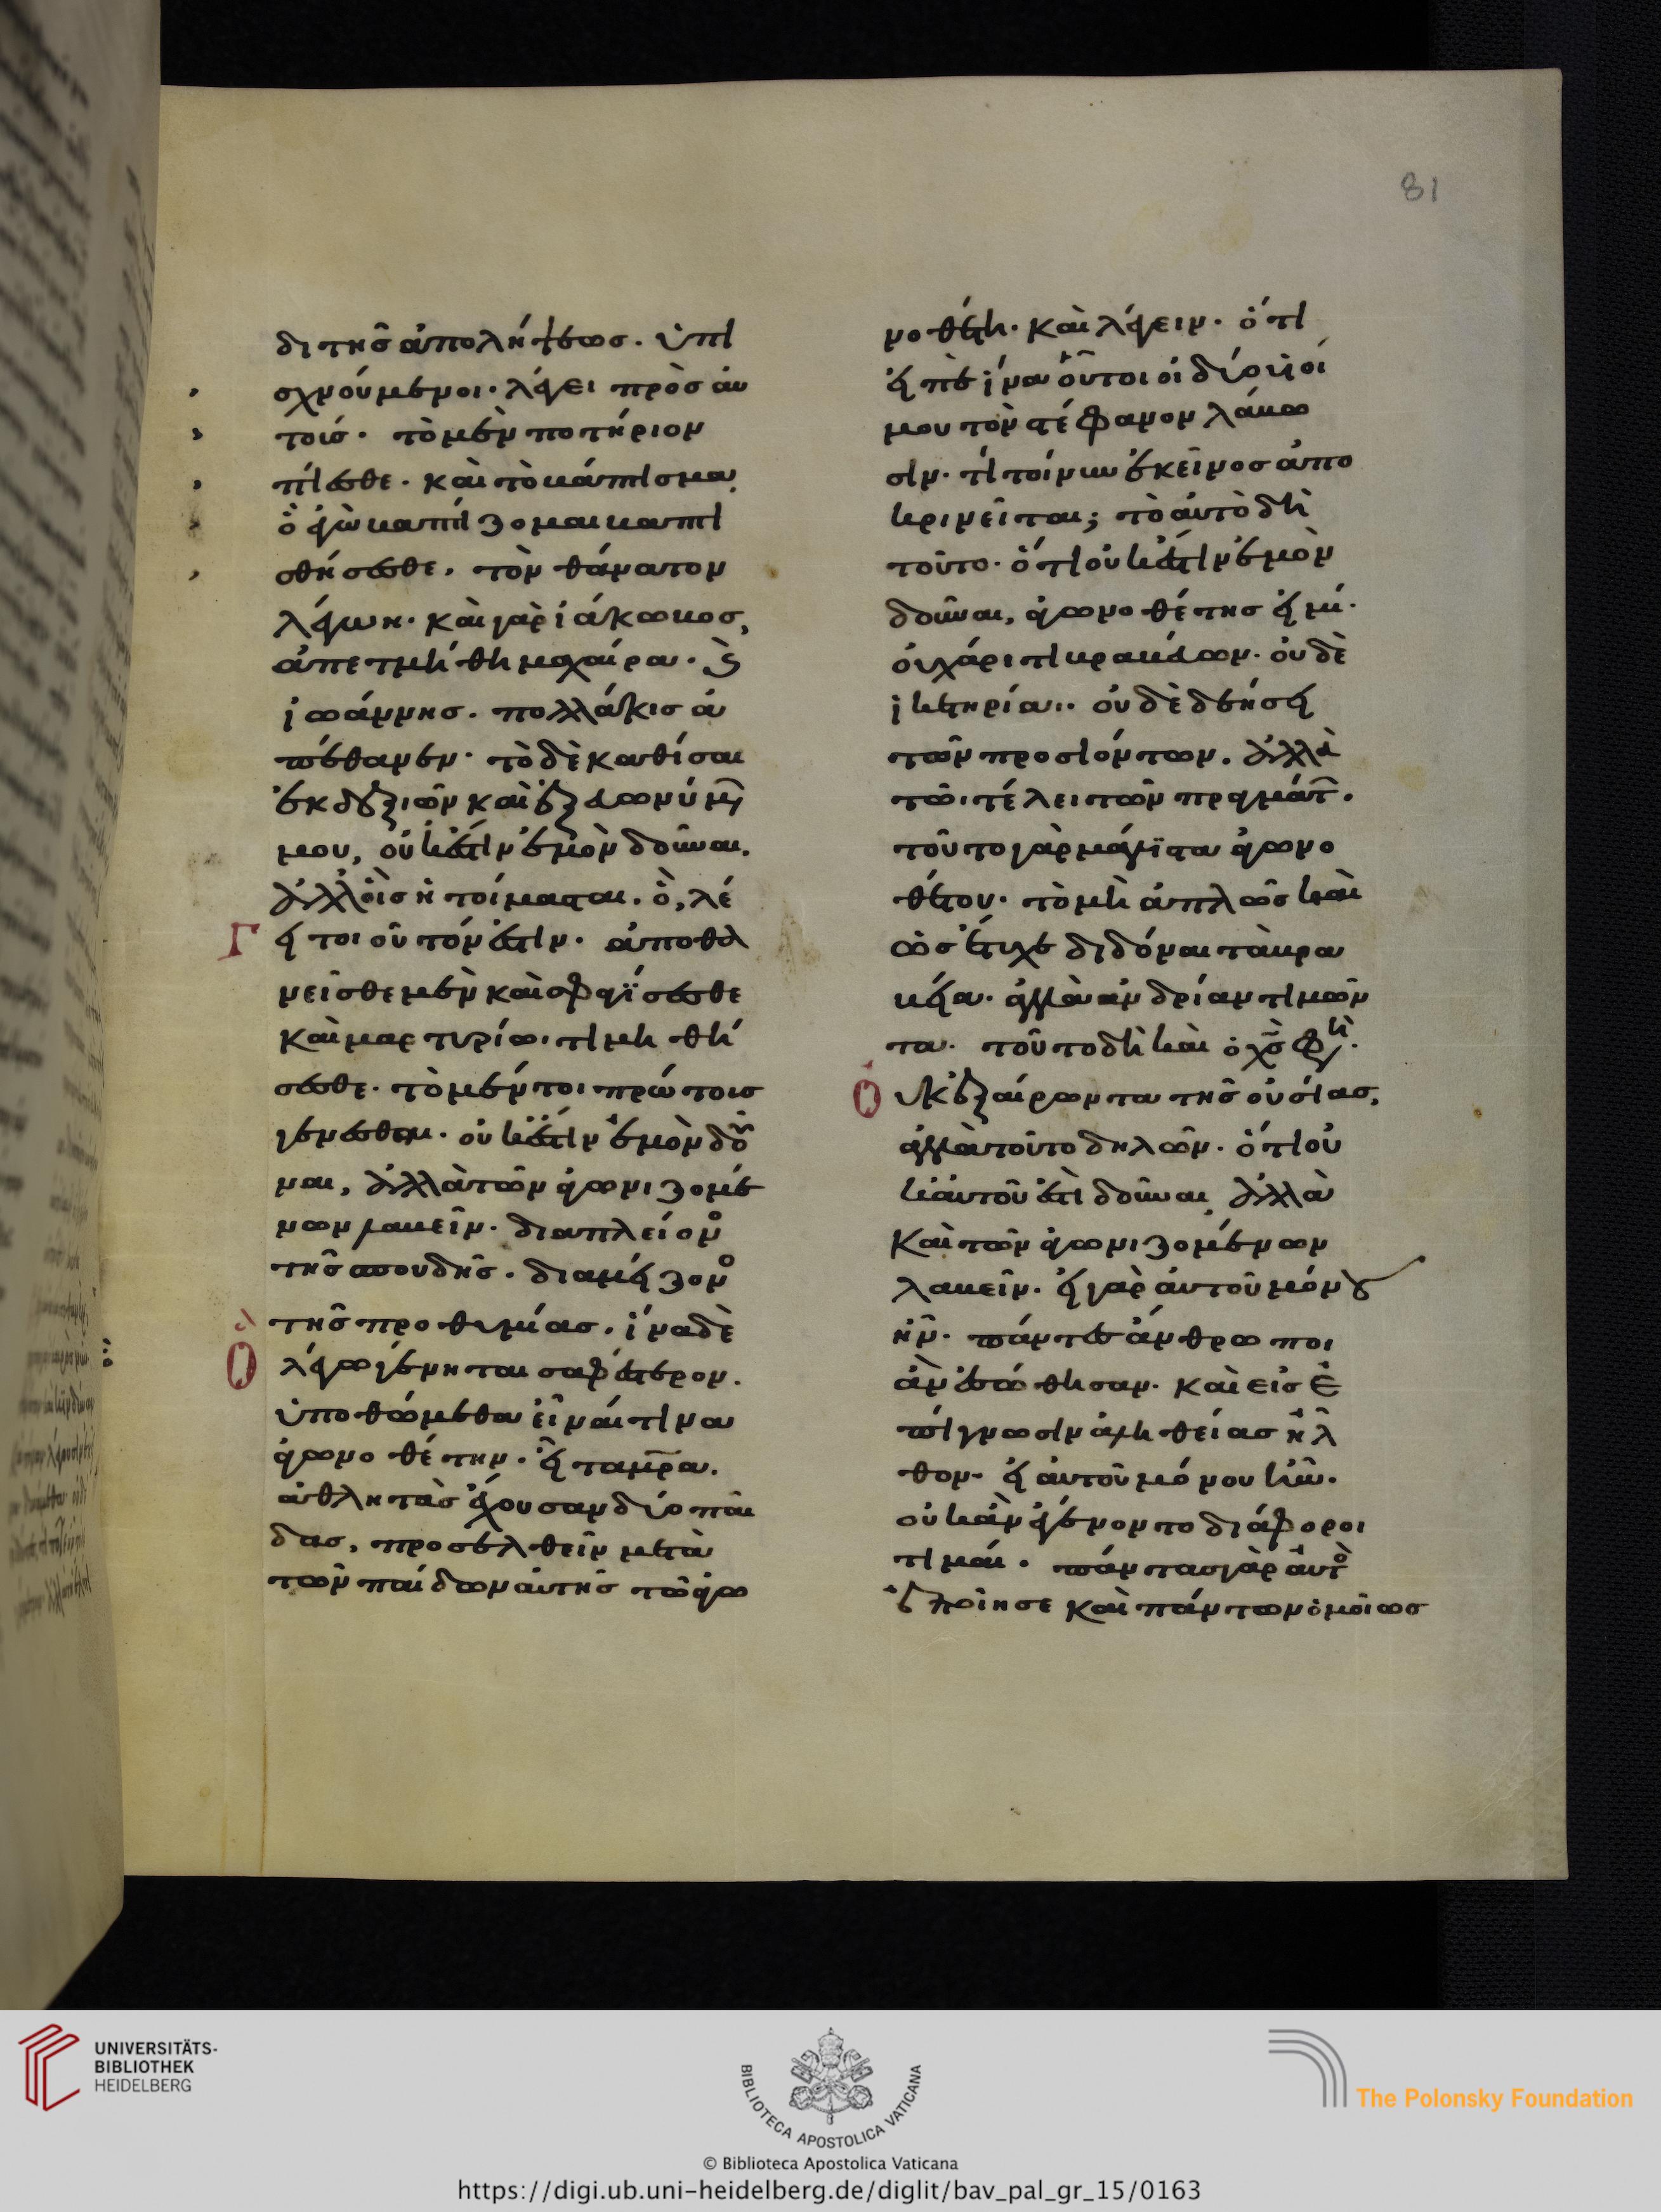 81
δι τῆς ἀπολήψεως. ὑπι
σχνούμενοι. λέγει πρὸς αὐ
τούς. τὸ μὲν ποτήριον
πίεσθε. καὶ τὸ βάπτισμα
ὃ ἐγὼ βαπτίζομαι βαπτι
σθήσεσθε. τὸν θάνατον
λέγων. καὶ γὰρ ἰάκωβος,
ἀπετμήθη μαχαίρα. ϛ
ἰωάννης. πολλάκις ἀ
πέθανεν. τὸ δὲ καθίσαι
ἐκ δεξιῶν καὶ ἐξ εὐωνύμ
μου, οὐκ ἔστιν ἐμὸν δοῦναι.
ἀλλ' οἷς ἡτοίμασται. ὃ, λέ
Γ ει τοιοῦτόν ἐστιν. ἀποθα
νεῖσθε μὲν καὶ σφαγήσεσθε
καὶ μαρτυρίω τιμηθή
σεσθε. τὸ μέντοι πρώτοις
γενέσθαι. οὐκ ἔστιν ἐμὸν δοῦ
ναι, ἀλλὰ τῶν ἀγωνιζομέ
νων λαβεῖν. διαπλείον
τῆς σπουδῆς. διαμείζον
τῆς προθυμίας. ἵνα δὲ
Ὃ λέγω γένηται σαφέστερον.
ὑποθώμεθα εἶναί τινα
ἀγωνοθέτην. εἶτα μρα.
ἀθλητὰς ἔχουσαν δύο παῖ
δας, προσελθεῖν μετὰ
τῶν παίδων αὐτῆς τῶ ἀγω
νοθέτη. καὶ λέγειν. ὅτι
εἰπὲ ἵνα οὗτοι οἱ δύο υἱοί
μου τὸν στέφανον λάβω
σιν. τί τοίνυν ἐκεῖνος ἀπο
κρινεῖται; τὸ αὐτὸ δὴ
τοῦτο. ὅτι οὐκ ἔστιν ἐμὸν
δοῦναι, ἀγωνοθέτης εἰμί.
οὐ χάριτι βραβεύων. οὐδὲ
ἱκετηρία. οὐδὲ δεήσει
τῶν προσιόντων. ἀλλὰ
τῶ τέλει τῶν πραγμάτ.
τοῦτο γὰρ μάλιστα ἀγωνο
θέτου. τὸ μὴ ἁπλῶς καὶ
ὡς ἔτυχε διδόναι τὰ βρα
βεῖα. ἀλλὰ ἀνδρίαν τιμῶν
τα. τοῦτο δὴ καὶ ὁ χς φη.
Ὀυκ ἐξαίρωντα τῆς οὐσίας,
ἀλλὰ τοῦτο δηλῶν. ὅτι οὐ
κ αὐτοῦ ἐστι δοῦναι, ἀλλὰ
καὶ τῶν ἀγωνιζομένων
λαβεῖν. εἰ γὰρ αὐτοῦ μόνου
ἦν. πάντες ἄνθρωποι
ἂν ἐσώθησαν. καὶ εἰς ἐ
πίγνωσιν ἀληθείας ἦλ
θον. εἰ αὐτοῦ μόνου ἦν.
οὐκ ἂν ἐγένοντο διάφοροι
τιμαί. πάντας γὰρ αὐτὸ
ἐποίησε καὶ πάντων ὁμοίως
UNIVERSITÄTS-
BIBLIOTHEK
HEIDELBERG
BIBLIOTECA APOSTOLICA VATICANA
© Biblioteca Apostolica Vaticana
The Polonsky Foundation
https://digi.ub.uni-heidelberg.de/diglit/bav_pal_gr_15/0163